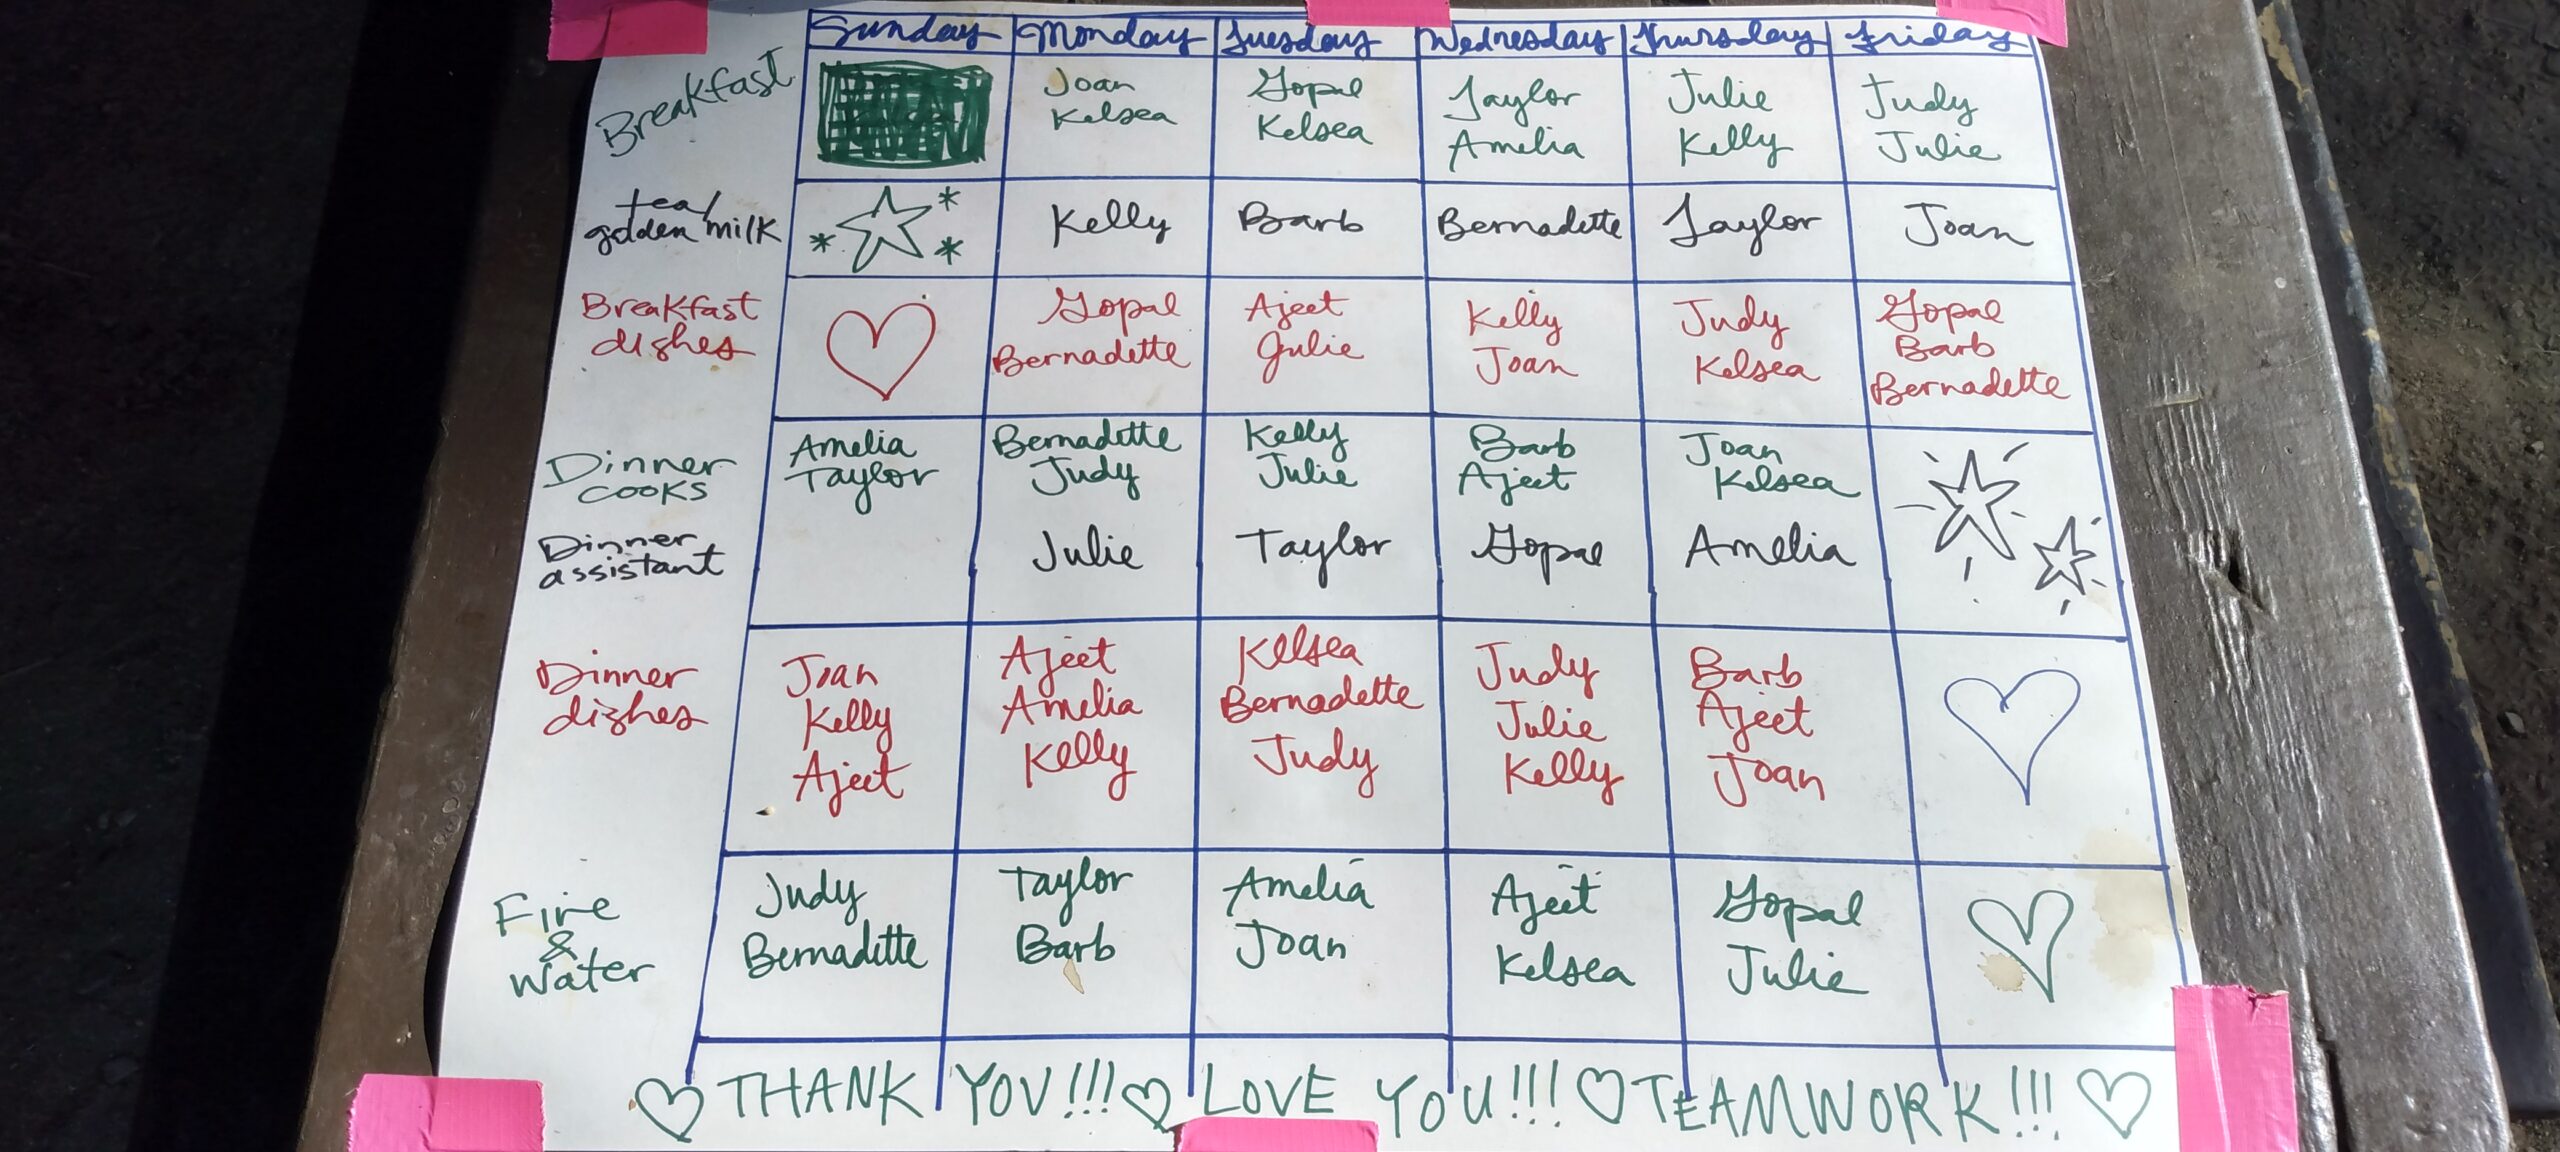 Sunday Monday Tuesday Wednesday Thursday Friday
Breakfast
Joan
Kelsea
Gopal
Kelsea
Taylor
Amelia
Julie
Kelly
Judy
Julie
tea/
golden milk
Kelly
Barb
Bernadette
Taylor
Joan
Breakfast
dishes
Gopal
Bernadette
Ajeet
Julie
Kelly
Joan
Judy
Kelsea
Gopal
Barb
Bernadette
Dinner
cooks
Amelia
Taylor
Bernadette
Judy
Kelly
Julie
Barb
Ajeet
Joan
Kelsea
Dinner
assistant
Julie
Taylor
Gopal
Amelia
Dinner
dishes
Joan
Kelly
Ajeet
Ajeet
Amelia
Kelly
Kelsea
Bernadette
Judy
Judy
Julie
Kelly
Barb
Ajeet
Joan
Fire
&
Water
Judy
Bernadette
Taylor
Barb
Amelia
Joan
Ajeet
Kelsea
Gopal
Julie
THANK YOU!!! LOVE YOU!!! TEAMWORK!!!